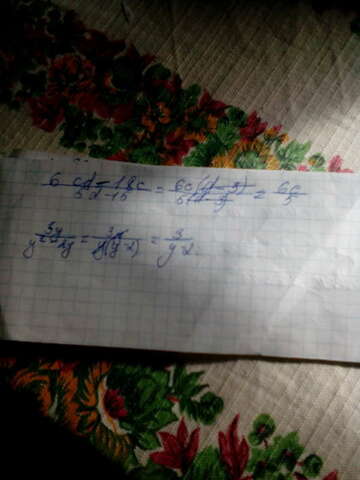 6 cd - 18c / 5d - 15 = 6c(d - 3) / 5(d - 3) = 6c / 5
3y / y² - 2y = 3y / y(y-2) = 3 / y-2